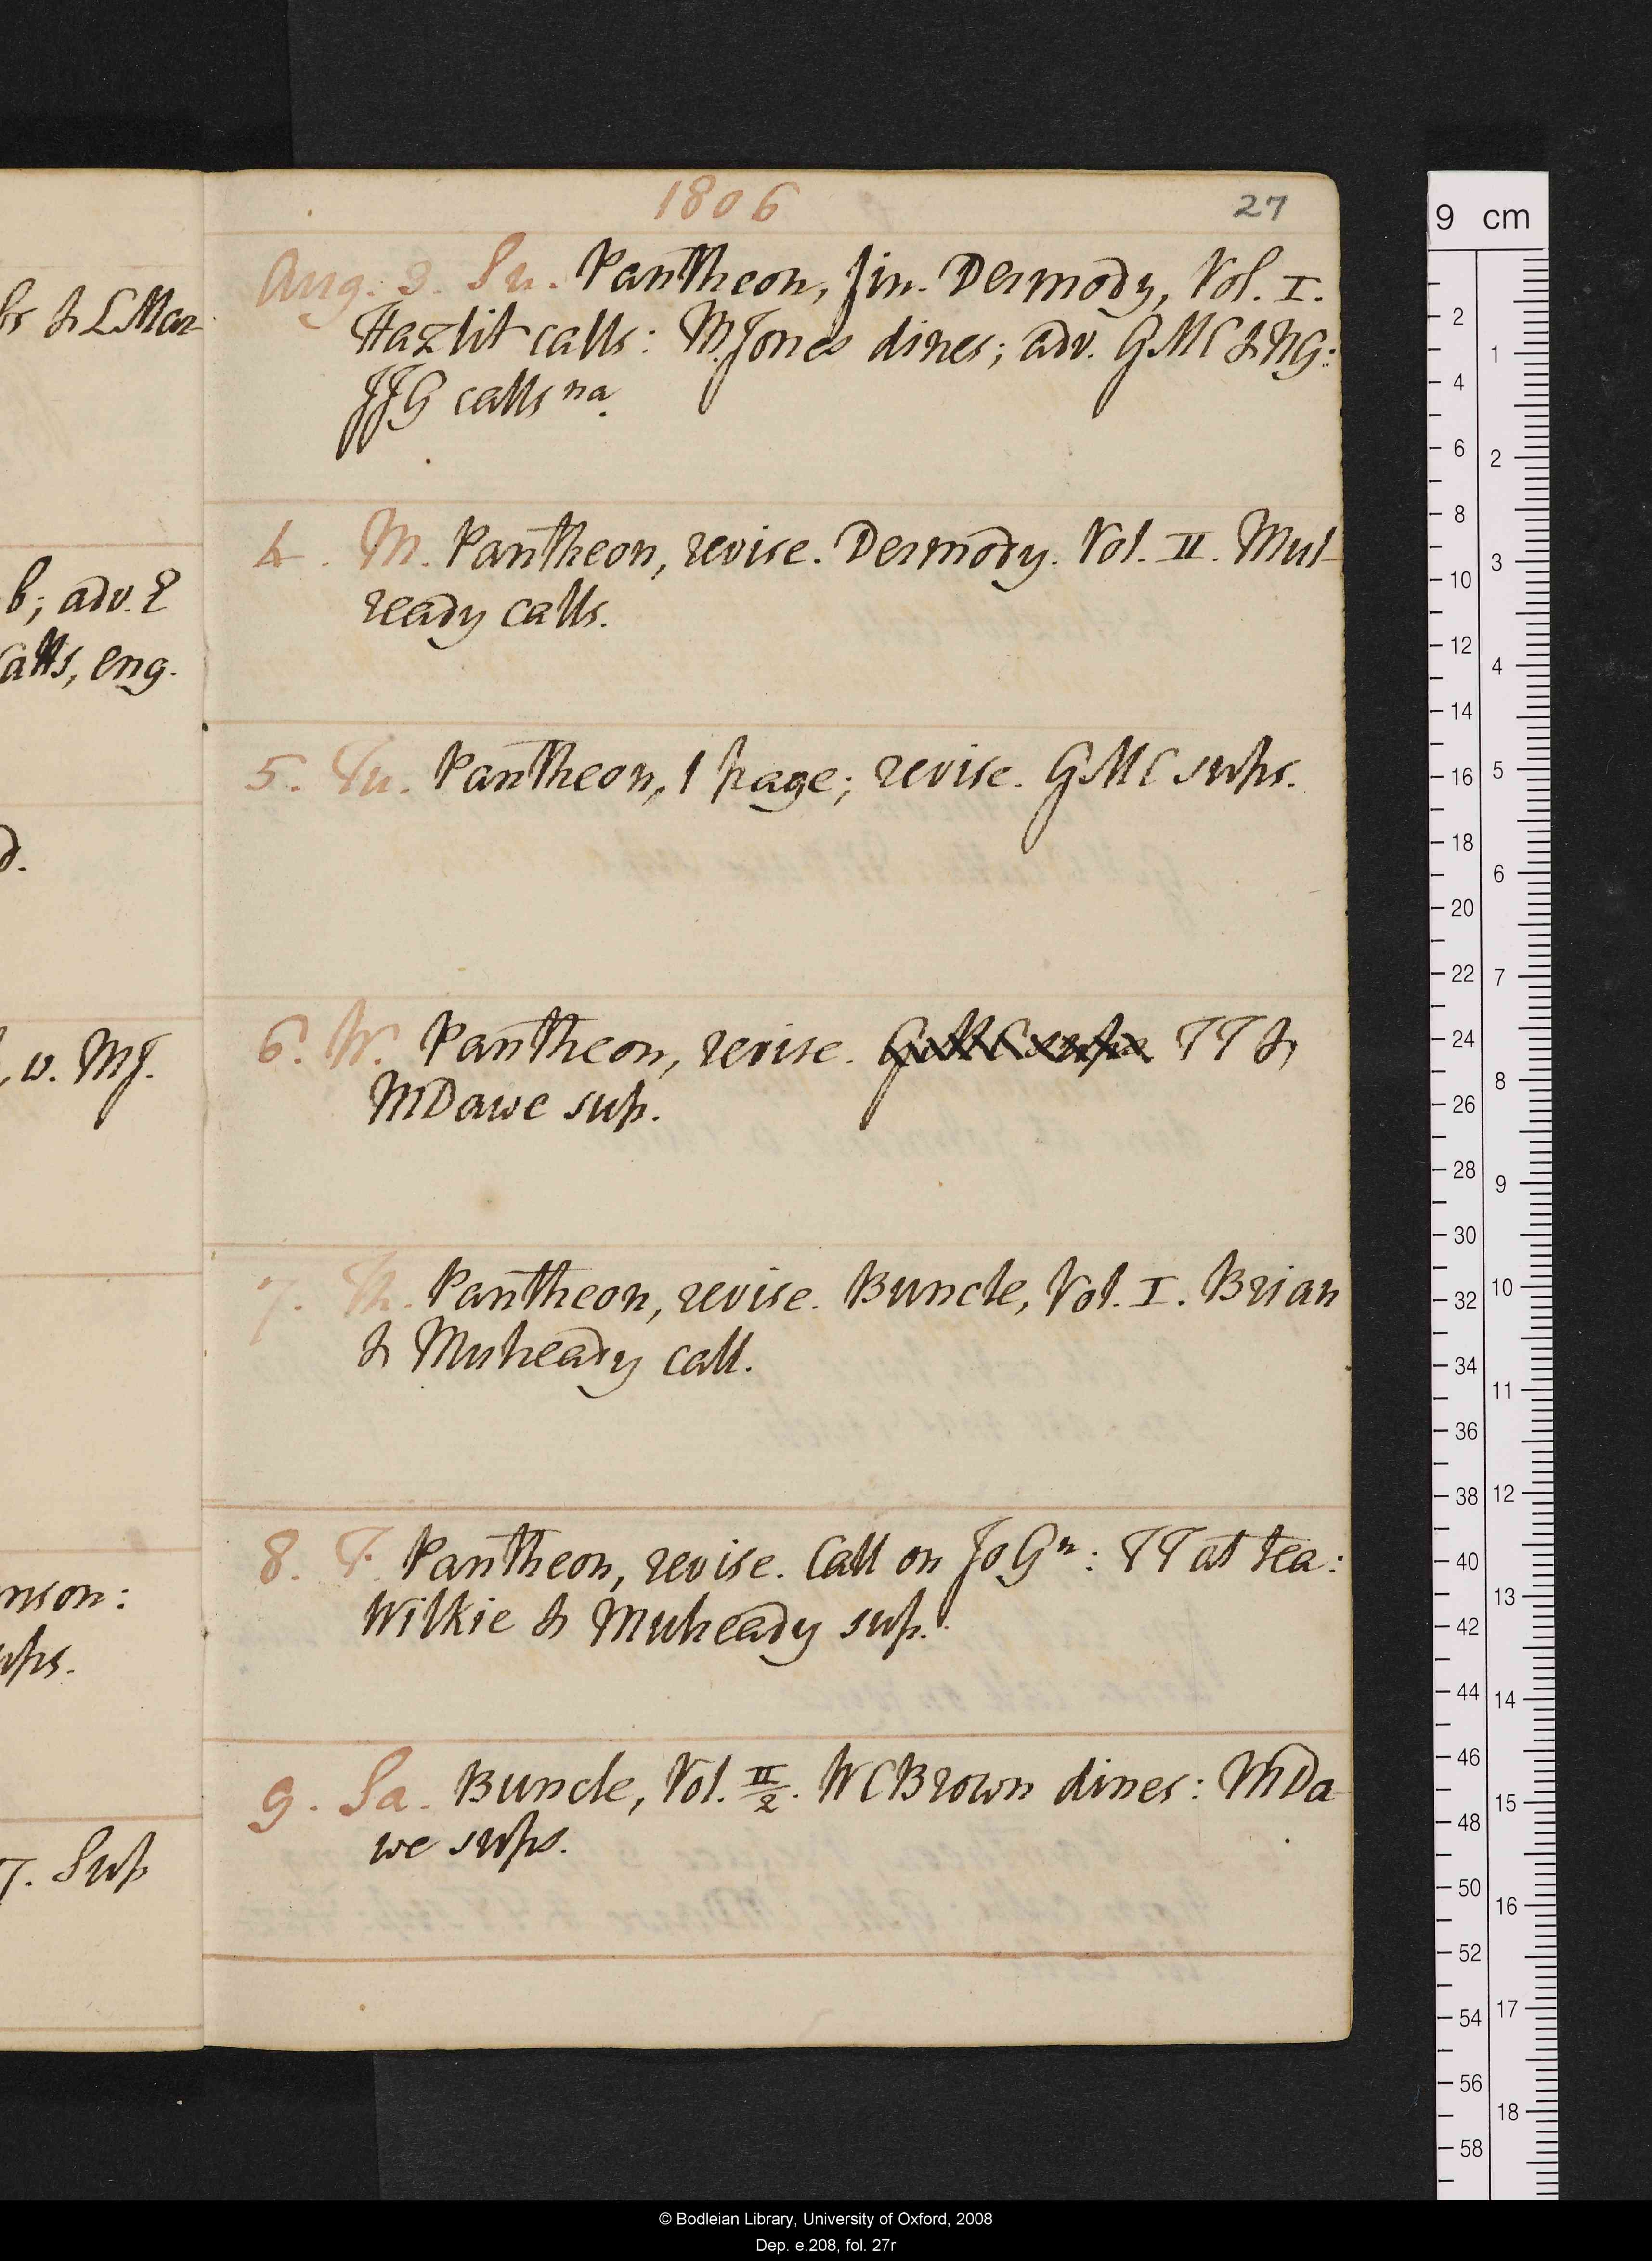 1806
27
Aug. 3. Su. Pantheon, fin. Dermody, Vol. I.
Hazlit calls: M. Jones dines; adv. GMC & NG:
JJG calls na.
4. M. Pantheon, revise. Dermody. Vol. II. Mul-
ready calls.
5. Tu. Pantheon, 1 page; revise. GMC sups.
6. W. Pantheon, revise. GMC sups TT &
MDawe sup.
7. Th. Pantheon, revise. Buncle, Vol. I. Brian
& Mulready call.
8. F. Pantheon, revise. Call on Jo Gn: TT at tea:
Wilkie & Mulready sup.
9. Sa. Buncle, Vol. II/2. WCBrown dines: MDa-
we sups.
& LMar
b; adv. E
calls, eng.
d.
, w. MJ.
nson:
ups.
T. Sup
9 cm
2
4
6
8
10
12
14
16
18
20
22
24
26
28
30
32
34
36
38
40
42
44
46
48
50
52
54
56
58
1
2
3
4
5
6
7
8
9
10
11
12
13
14
15
16
17
18
© Bodleian Library, University of Oxford, 2008
Dep. e.208, fol. 27r